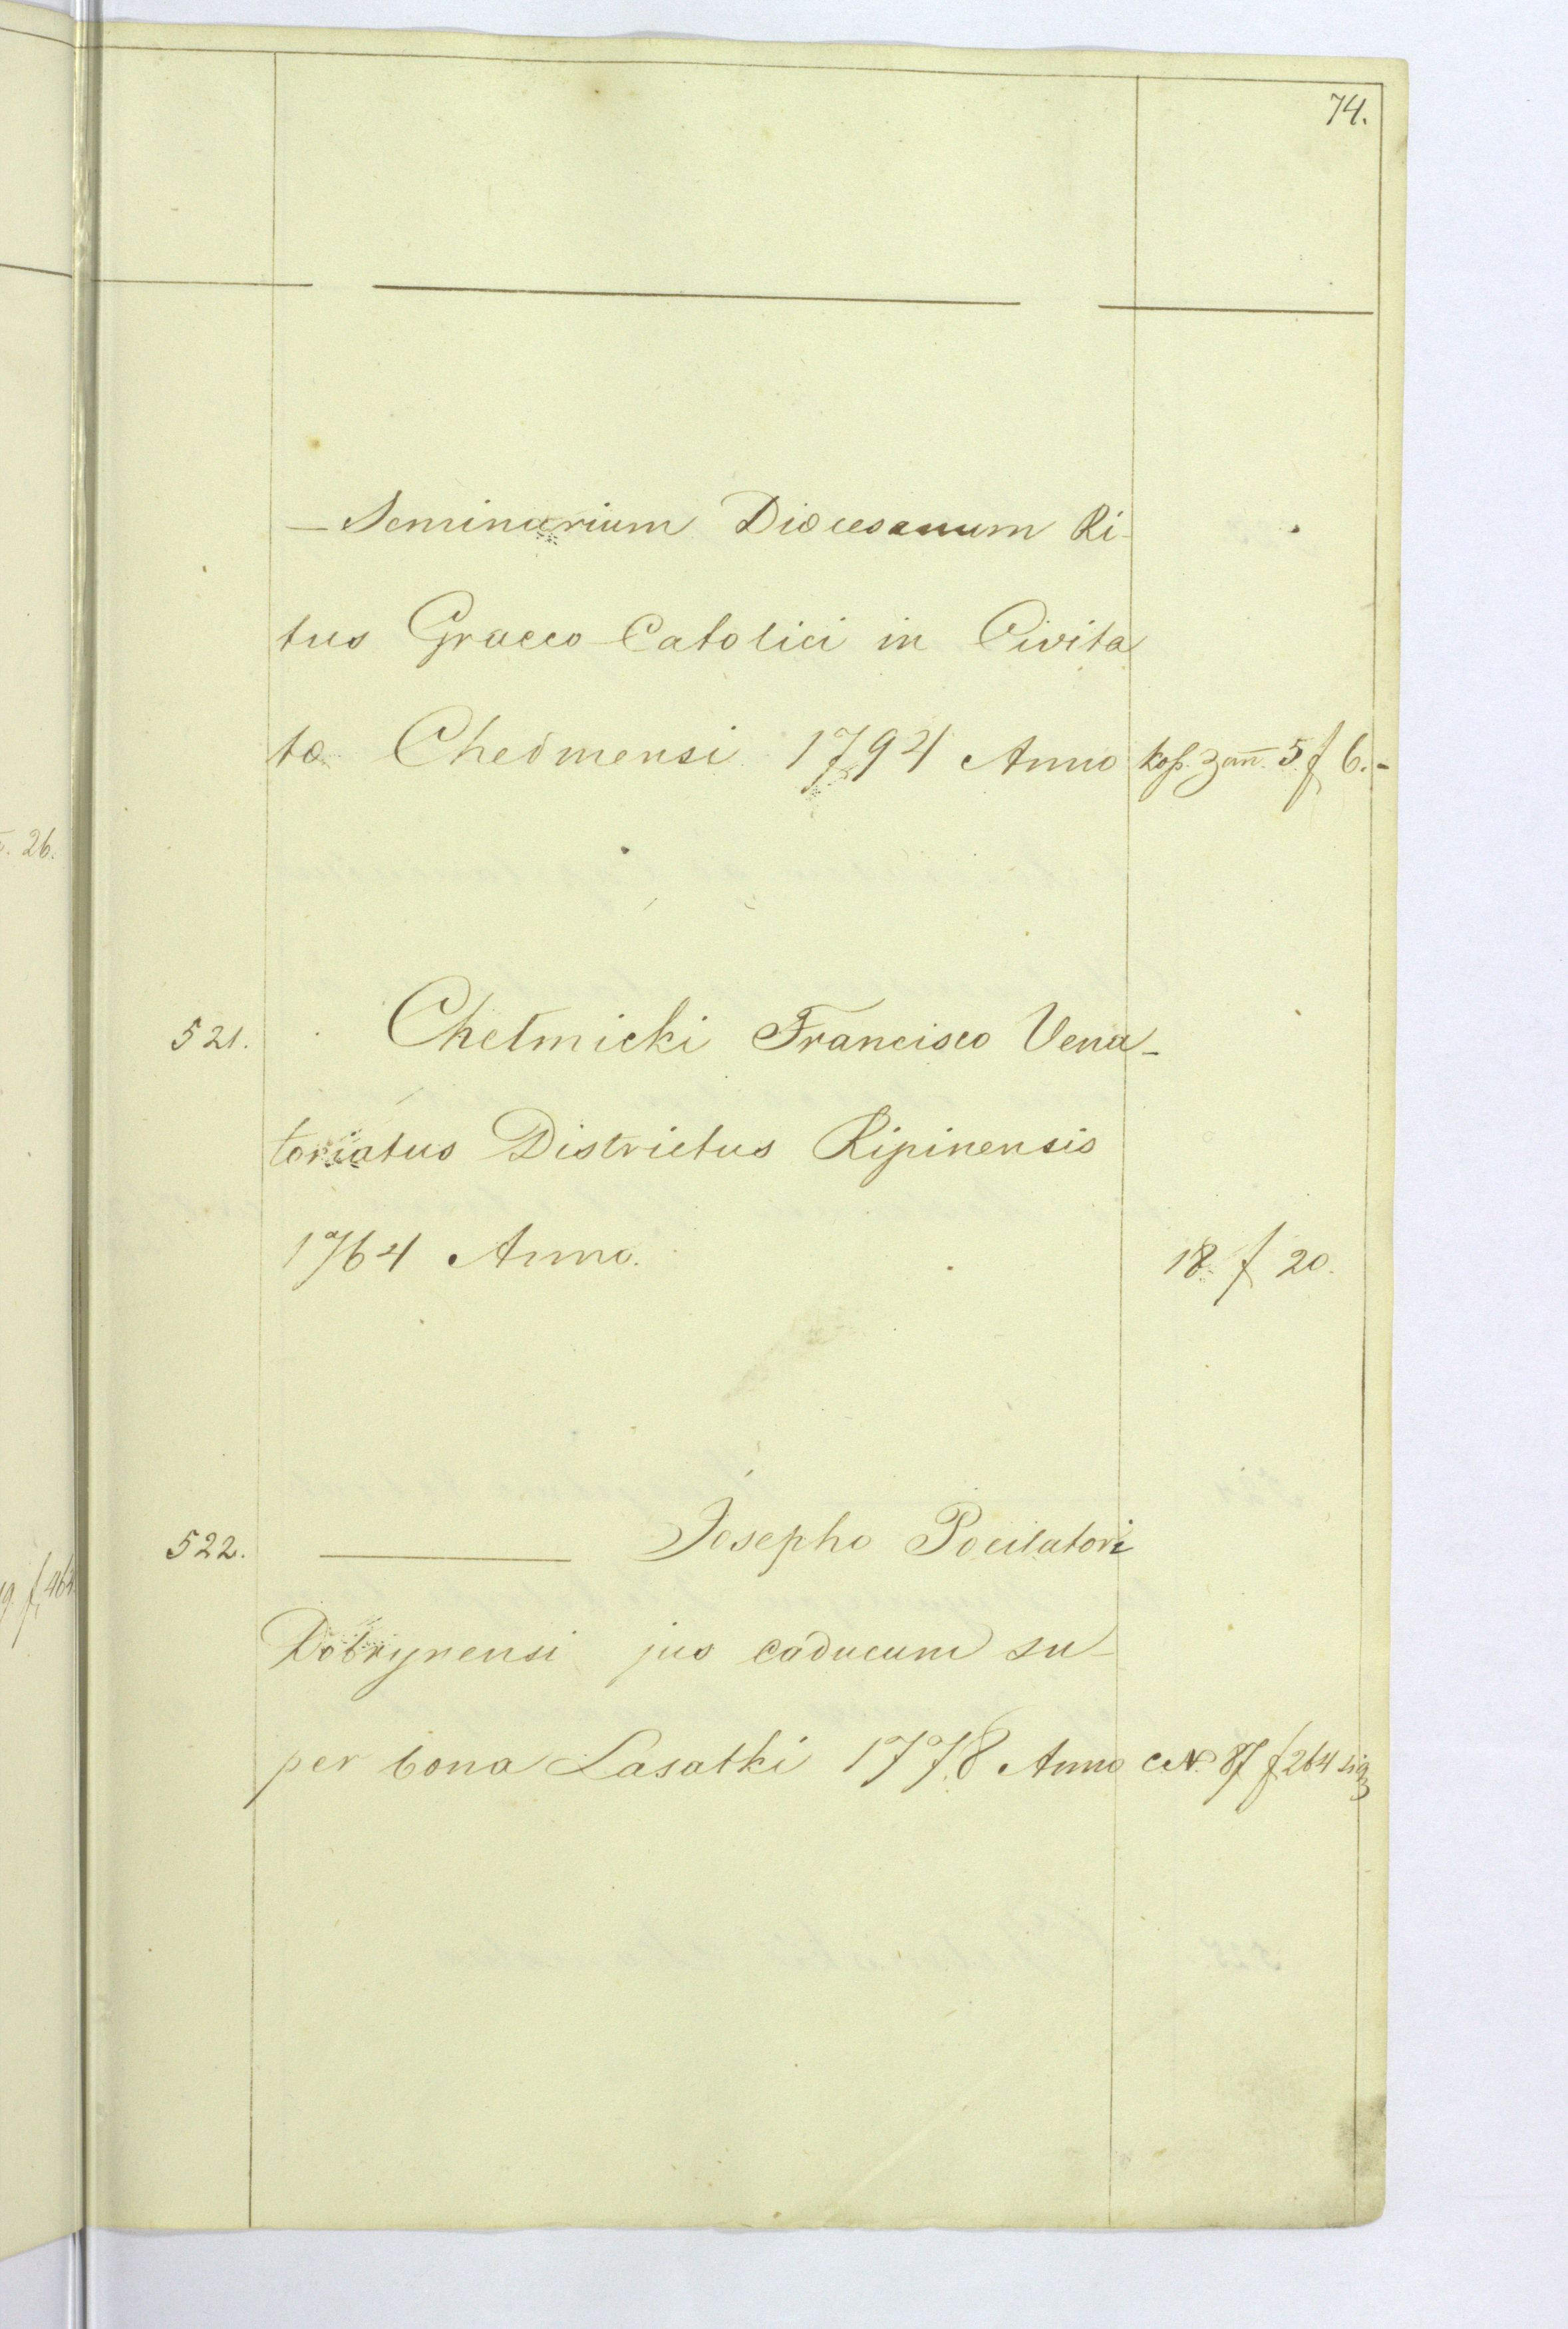 74.
— Seminarium Diocesanum Ri-
tus Graeco Catolici in Civita
te Chełmensi 1794 Anno 5 f 6.-
521. Chełmicki Francisco Vena-
toriatus Districtus Ripinensis
1764 Anno. 18 f 20.
522. ——— Josepho Pocilatori
Dobrynensi jus caducum su-
per bona Lasatki 1778 Anno N 87 f 264
26.
f 464